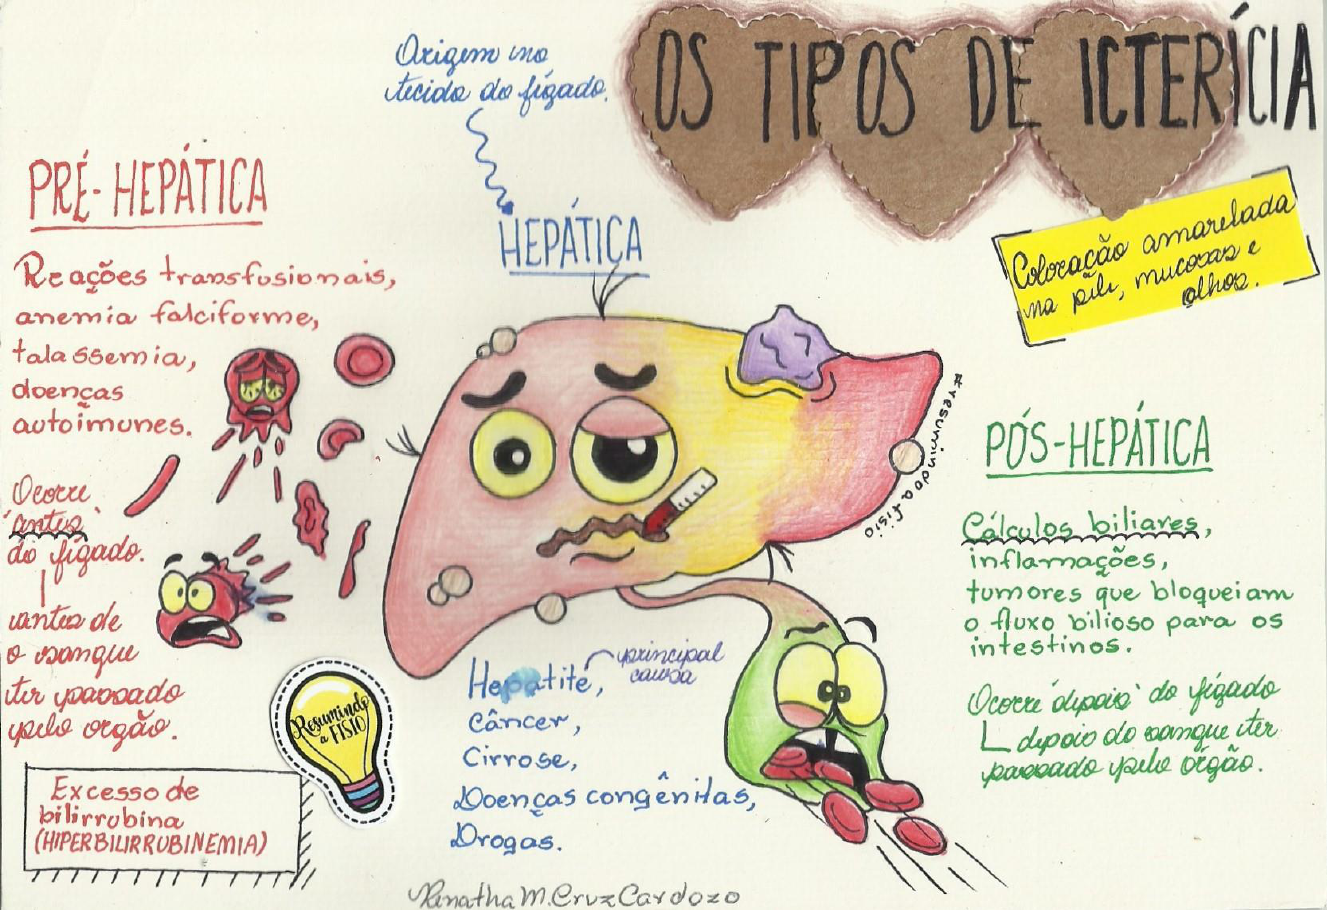 OS TIPOS DE ICTERÍCIA
Coloração amarelada
na pele, mucosas e
olhos.
Origem no
tecido do fígado.
HEPÁTICA
PRÉ-HEPÁTICA
Reações transfusionais,
anemia falciforme,
talassemia,
doenças
autoimunes.
Ocorre
'antes'
do fígado.
antes de
o sangue
ter passado
pelo orgão.
Excesso de
bilirrubina
(HIPERBILIRRUBINEMIA)
Resumindo
a FISIO
Hepatite,
principal
causa
Câncer,
Cirrose,
Doenças congênitas,
Drogas.
#resumindoafisio
PÓS-HEPÁTICA
Cálculos biliares,
inflamações,
tumores que bloqueiam
o fluxo bilioso para os
intestinos.
Ocorre 'depois' do fígado
depois do sangue ter
passado pelo órgão.
Renatha M. Cruz Cardozo